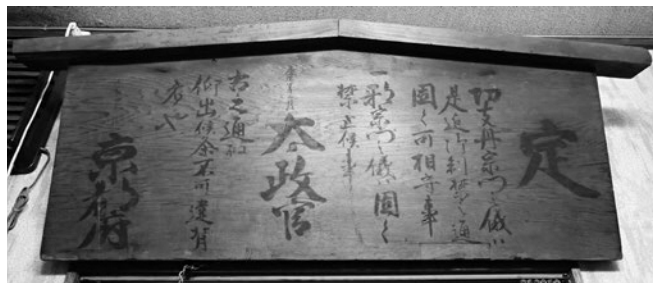 定
一切支丹宗門之儀ハ
是迄御制禁之通
固く可相守事
一邪宗門之儀ハ固く
禁止候事
太政官
右之通被
仰出候条不可違背
者也
京都府